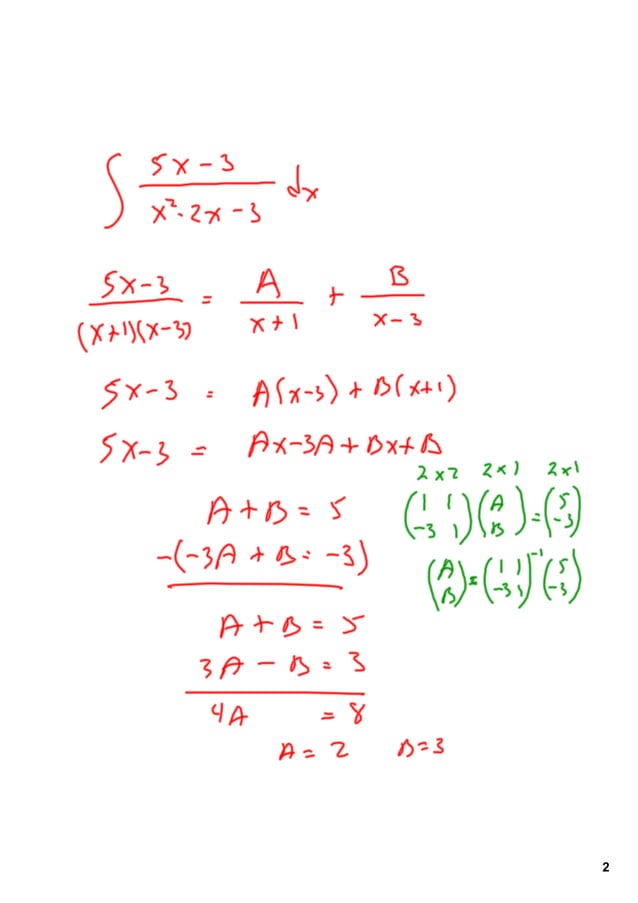 ∫ (5x-3)/(x²-2x-3) dx
(5x-3)/((x+1)(x-3)) = A/(x+1) + B/(x-3)
5x-3 = A(x-3)+B(x+1)
5x-3 = Ax-3A+Bx+B
A+B=5
-(-3A+B=-3)
A+B=5
3A-B=3
4A =8
A=2 B=3
2x2 2x1 2x1
(1 1; -3 1)(A; B)=(5; -3)
(A; B)=(1 1; -3 1)⁻¹(5; -3)
2